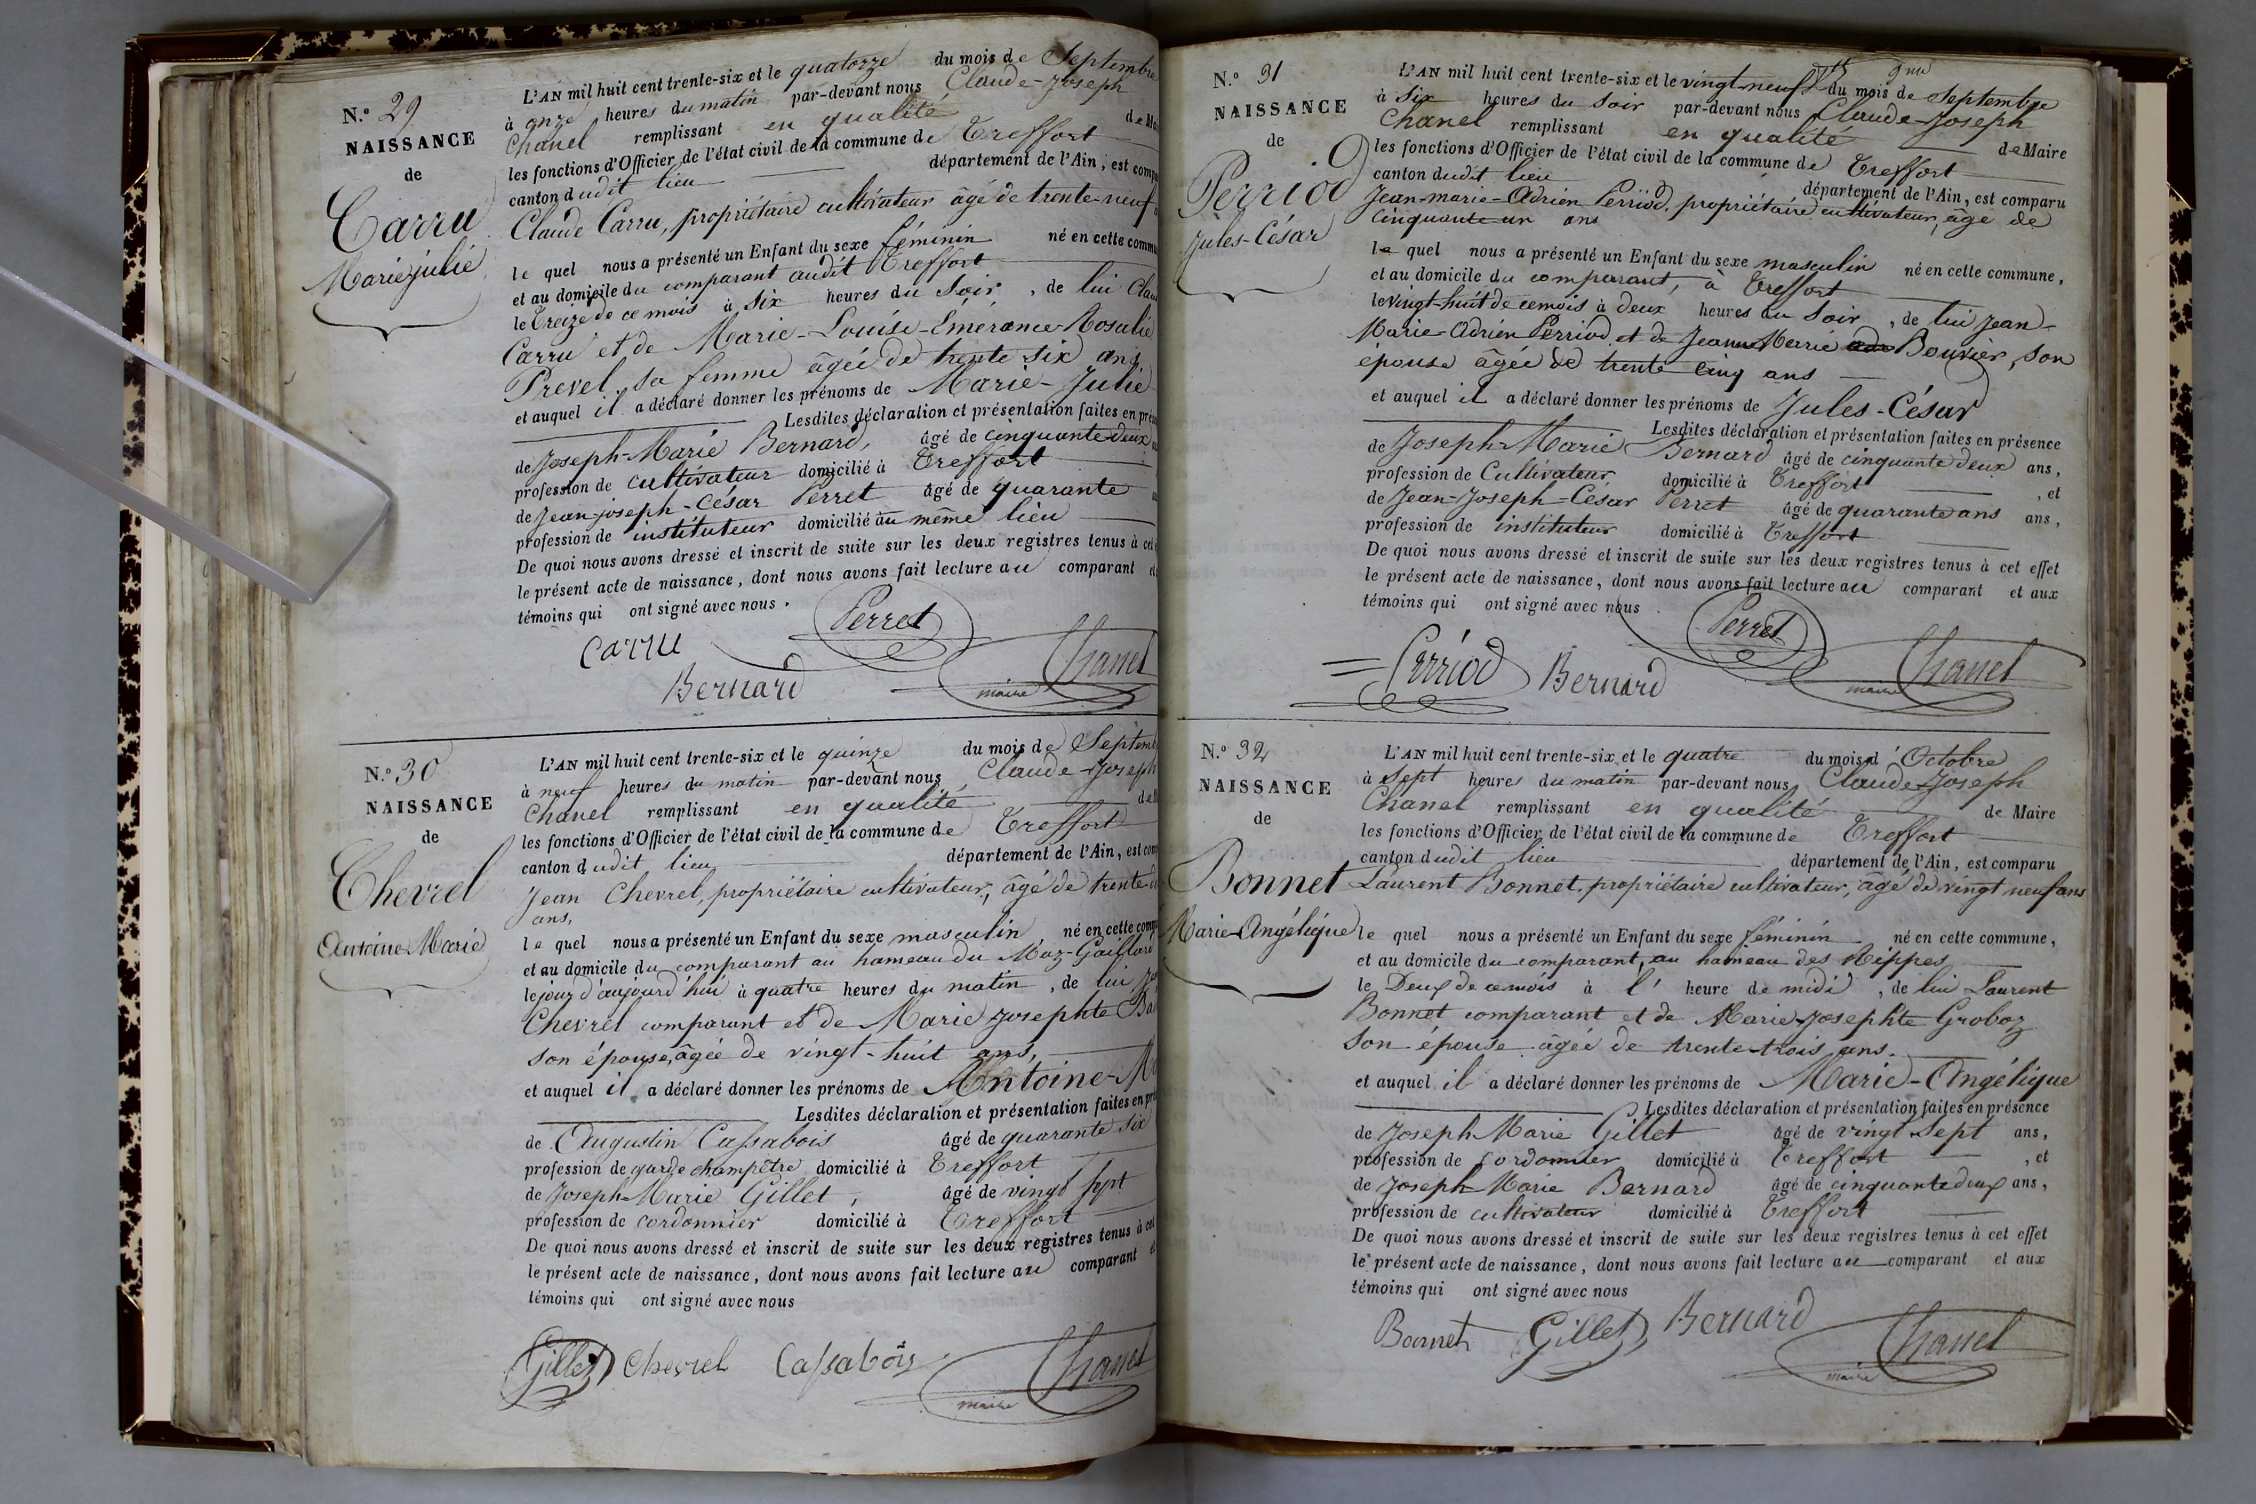 N.º 29
NAISSANCE
de
Carru
Marie julie
L'AN mil huit cent trente-six et le quatorze du mois de Septembre
à onze heures du matin par-devant nous Claude-Joseph
Chanel remplissant en qualité de
les fonctions d'Officier de l'état civil de la commune de Treffort
canton dudit lieu département de l'Ain, est
Claude Carru, propriétaire cultivateur âgé de trente-neuf
le quel nous a présenté un Enfant du sexe féminin né en cette
et au domicile du comparant audit Treffort
le treize de ce mois à six heures du soir, de lui
Carru et de Marie-Louise-Emerance-Rosalie
Prevel, sa femme âgée de trente six ans,
et auquel il a déclaré donner les prénoms de Marie-Julie
Lesdites déclaration et présentation faites en
de Joseph-Marie Bernard, âgé de cinquante-deux
profession de cultivateur domicilié à Treffort
de Jean-joseph-César Perret âgé de quarante
profession de instituteur domicilié au même lieu
De quoi nous avons dressé et inscrit de suite sur les deux registres tenus à cet
le présent acte de naissance, dont nous avons fait lecture au comparant
témoins qui ont signé avec nous.
Perret
Carru
Chanel
maire
Bernard
N.º 30
NAISSANCE
de
Chevrel
Antoine-Marie
L'AN mil huit cent trente-six et le quinze du mois de
à neuf heures du matin par-devant nous Claude-Joseph
Chanel remplissant en qualité
les fonctions d'Officier de l'état civil de la commune de Treffort
canton dudit lieu département de l'Ain, est
Jean Chevrel, propriétaire cultivateur, âgé de trente
ans,
le quel nous a présenté un Enfant du sexe masculin né en cette
et au domicile du comparant au hameau du Maz-Gaillard
le jour d'aujourd'hui à quatre heures du matin, de lui
Chevrel comparant et de Marie Josephte
son épouse, âgée de vingt-huit ans,
et auquel il a déclaré donner les prénoms de Antoine-
Lesdites déclaration et présentation faites en
de Augustin Cassabois âgé de quarante six
profession de garde champêtre domicilié à Treffort
de Joseph-Marie Gillet, âgé de vingt sept
profession de cordonnier domicilié à Treffort
De quoi nous avons dressé et inscrit de suite sur les deux registres tenus à cet
le présent acte de naissance, dont nous avons fait lecture au comparant
témoins qui ont signé avec nous
Gillet Chevrel Cassabois Chanel
maire
N.º 31
NAISSANCE
de
Perriod
Jules-César
L'AN mil huit cent trente-six et le vingt-neuf du mois de Septembre
à six heures du soir par-devant nous Claude-Joseph
Chanel remplissant en qualité de Maire
les fonctions d'Officier de l'état civil de la commune de Treffort
canton dudit lieu département de l'Ain, est comparu
Jean-marie-Adrien Perriod, propriétaire cultivateur, âgé de
cinquante un ans
le quel nous a présenté un Enfant du sexe masculin né en cette commune,
et au domicile du comparant, à Treffort
le vingt-huit de ce mois à deux heures du soir, de lui Jean-
Marie-Adrien Perriod et de Jeanne Marie Bouvier, son
épouse âgée de trente cinq ans
et auquel il a déclaré donner les prénoms de Jules-César
Lesdites déclaration et présentation faites en présence
de Joseph-Marie Bernard âgé de cinquante deux ans,
profession de Cultivateur domicilié à Treffort, et
de Jean-Joseph-César Perret âgé de quarante ans ans,
profession de instituteur domicilié à Treffort
De quoi nous avons dressé et inscrit de suite sur les deux registres tenus à cet effet
le présent acte de naissance, dont nous avons fait lecture au comparant et aux
témoins qui ont signé avec nous.
Perret
Perriod Bernard Chanel
maire
N.º 32
NAISSANCE
de
Bonnet
Marie-Angélique
L'AN mil huit cent trente-six et le quatre du mois d'Octobre
à sept heures du matin par-devant nous Claude-Joseph
Chanel remplissant en qualité de Maire
les fonctions d'Officier de l'état civil de la commune de Treffort
canton dudit lieu département de l'Ain, est comparu
Laurent Bonnet, propriétaire cultivateur, âgé de vingt neuf ans
le quel nous a présenté un Enfant du sexe féminin né en cette commune,
et au domicile du comparant, au hameau des Nippes
le Deux de ce mois à l'heure de midi, de lui Laurent
Bonnet comparant et de Marie-Josephte Groboz
son épouse âgée de trente-trois ans.
et auquel il a déclaré donner les prénoms de Marie-Angélique
Lesdites déclaration et présentation faites en présence
de Joseph Marie Gillet âgé de vingt-Sept ans,
profession de cordonnier domicilié à Treffort, et
de Joseph Marie Bernard âgé de cinquante deux ans,
profession de cultivateur domicilié à Treffort
De quoi nous avons dressé et inscrit de suite sur les deux registres tenus à cet effet
le présent acte de naissance, dont nous avons fait lecture au comparant et aux
témoins qui ont signé avec nous
Bonnet Gillet Bernard Chanel
maire